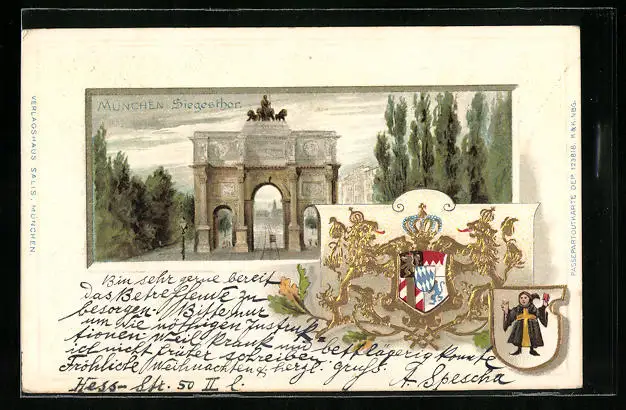 MÜNCHEN Siegesthor.
VERLAGSHAUS SALIS, MÜNCHEN
PASSEPARTOUTKARTE DEP. 123818. R & K. NBG.
Bin sehr gerne bereit
das Betreffende zu
besorgen. Bitte nur
um die nöthigen Instruk-
tionen. Weil krank und bettlägerig konnte
ich nicht früher schreiben
Fröhliche Weihnachten & herzl. gruß.
A. Spescha
Hess-Str. 50 II l.